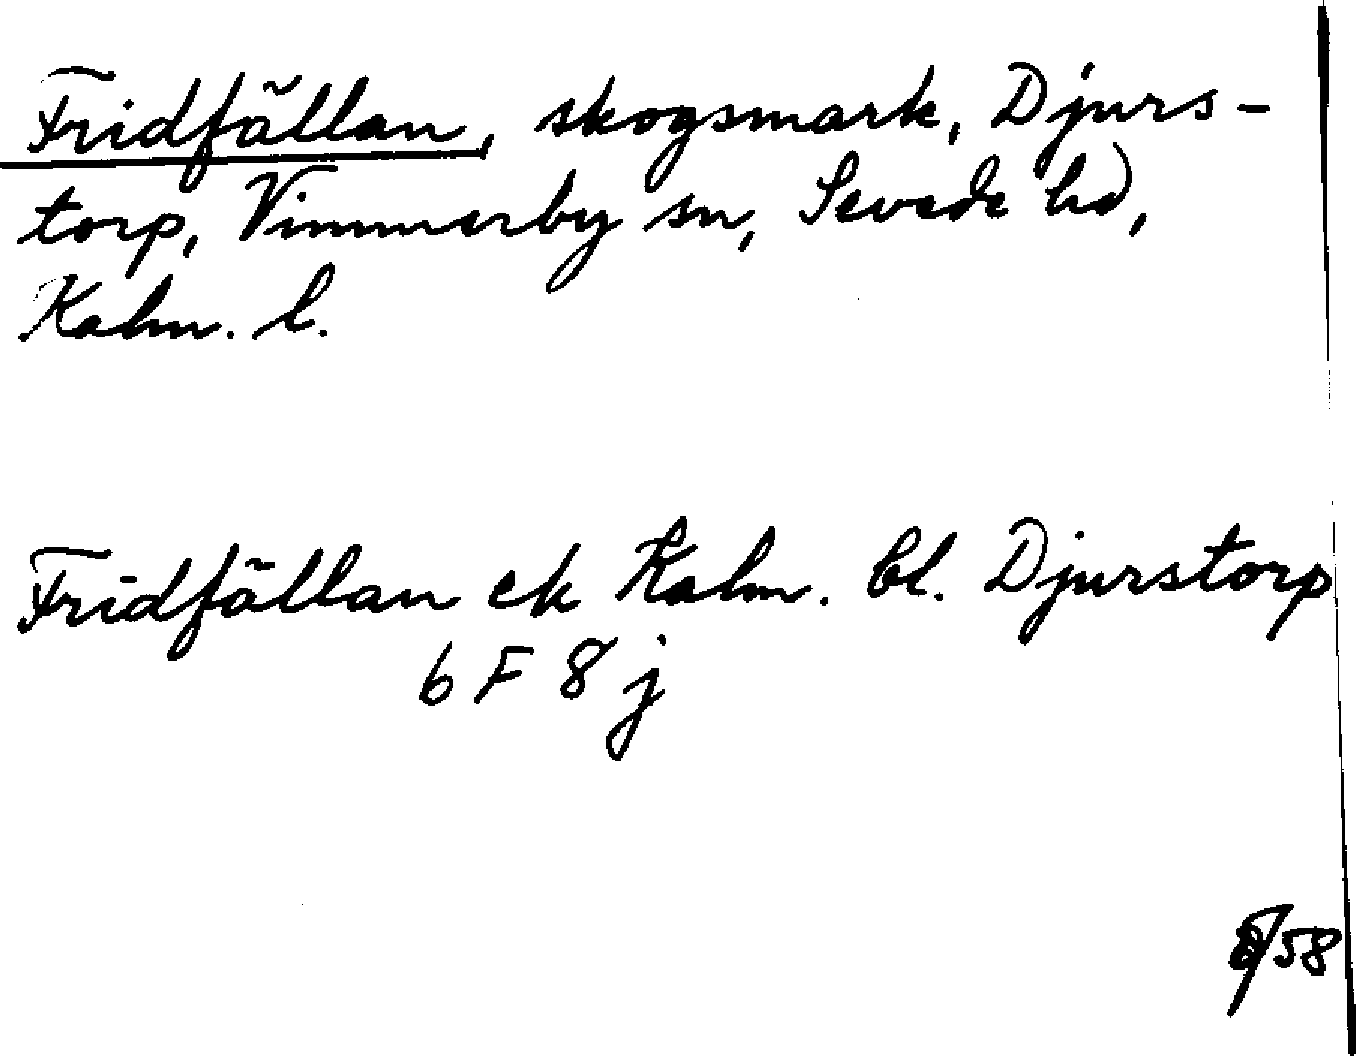 Fridfällan, skogsmark, Djurs-
torp, Vimmerby sn, Sevede hd,
Kalm. l.
Fridfällan ek Kalm. bl. Djurstorp
6 F 8 j
58